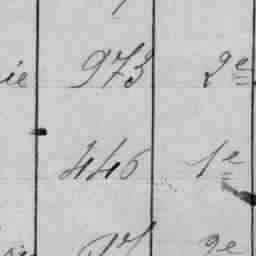 ie 973 2e
446 1e
2e